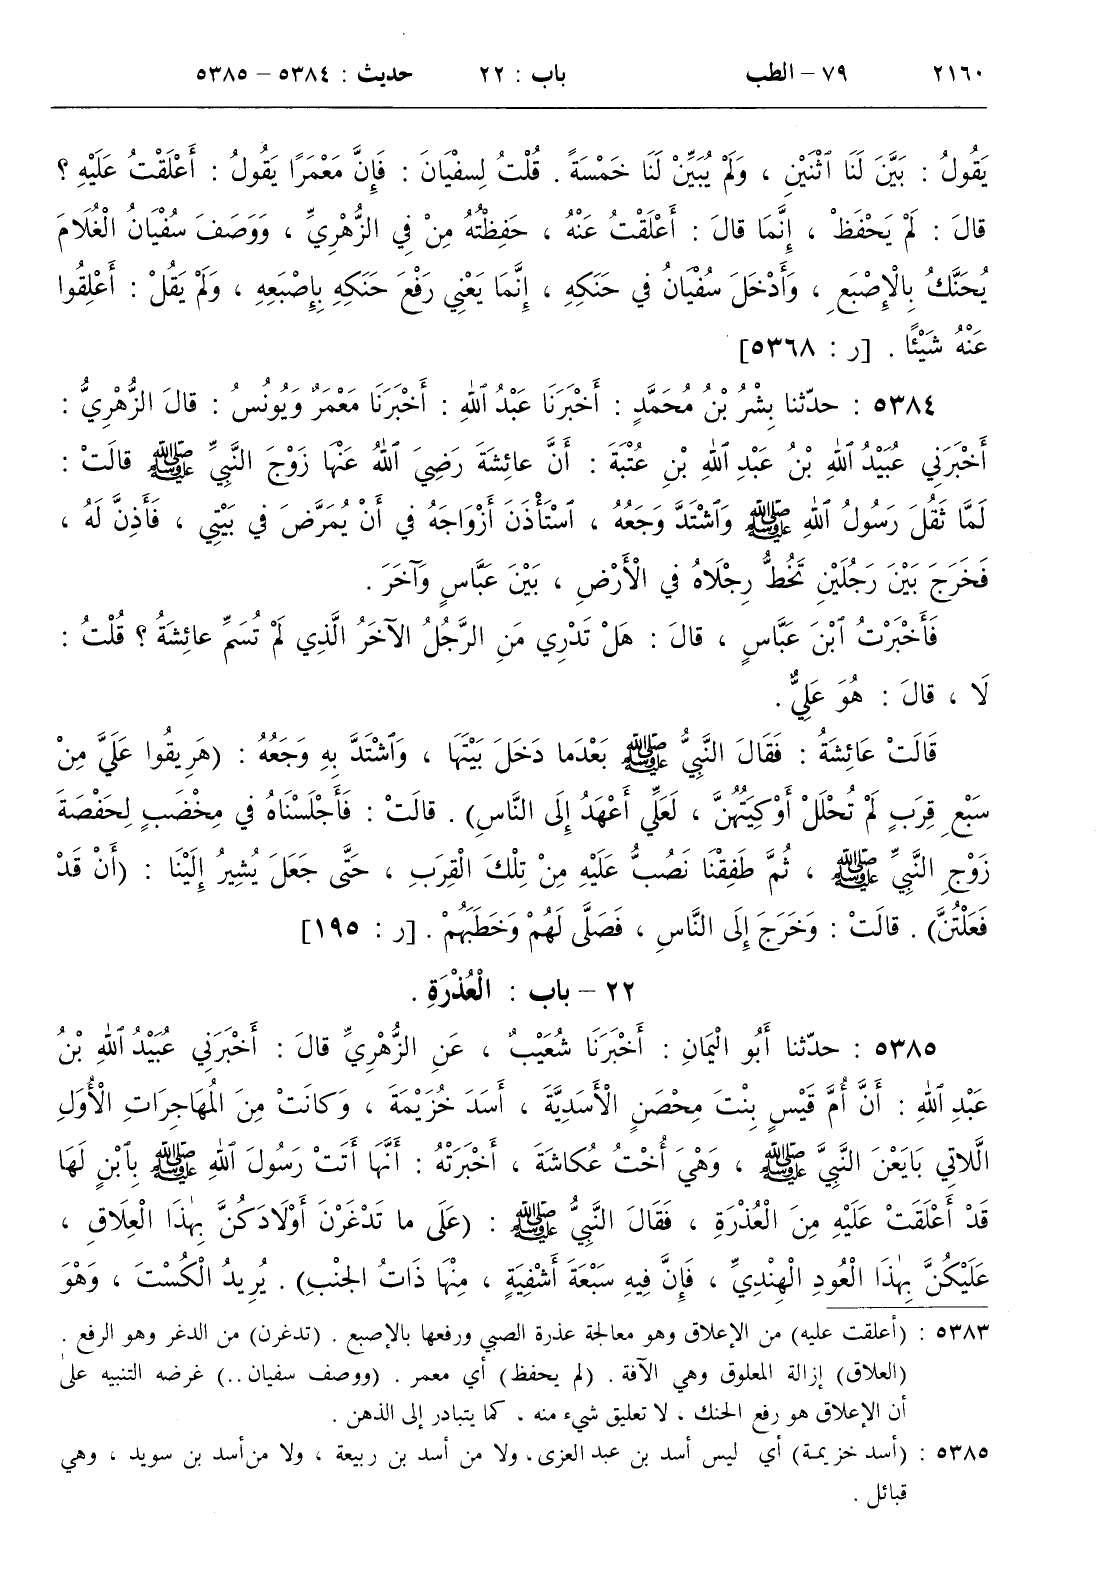 ٢١٦٠ ٧٩ – الطب باب : ٢٢ حديث : ٥٣٨٤ – ٥٣٨٥
يَقُولُ : بَيَّنَ لَنَا ٱثْنَيْنِ ، وَلَمْ يُبَيِّنْ لَنَا خَمْسَةً . قُلْتُ لِسفْيَانَ : فَإِنَّ مَعْمَرًا يَقُولُ : أَعْلَقْتُ عَلَيْهِ ؟
قالَ : لَمْ يَحْفَظْ ، إِنَّمَا قالَ : أَعْلَقْتُ عَنْهُ ، حَفِظْتُهُ مِنْ فِي الزُّهْرِيِّ ، وَوَصَفَ سُفْيَانُ الْغُلَامَ
يُحَنَّكُ بِالْإِصْبَعِ ، وَأَدْخَلَ سُفْيَانُ في حَنَكِهِ ، إِنَّمَا يَعْنِي رَفْعَ حَنَكِهِ بِإِصْبَعِهِ ، وَلَمْ يَقُلْ : أَعْلِقُوا
عَنْهُ شَيْئًا . [ر : ٥٣٦٨]
٥٣٨٤ : حدّثنا بِشْرُ بْنُ مُحَمَّدٍ : أَخْبَرَنَا عَبْدُ ٱللهِ : أَخْبَرَنَا مَعْمَرٌ وَيُونُسُ : قالَ الزُّهْرِيُّ :
أَخْبَرَنِي عُبَيْدُ ٱللهِ بْنُ عَبْدِ ٱللهِ بْنِ عُتْبَةَ : أَنَّ عائِشَةَ رَضِيَ ٱللهُ عَنْهَا زَوْجَ النَّبِيِّ ﷺ قالَتْ :
لَمَّا ثَقُلَ رَسُولُ ٱللهِ ﷺ وَٱشْتَدَّ وَجَعُهُ ، ٱسْتَأْذَنَ أَزْوَاجَهُ في أَنْ يُمَرَّضَ في بَيْتِي ، فَأَذِنَّ لَهُ ،
فَخَرَجَ بَيْنَ رَجُلَيْنِ تَخُطُّ رِجْلَاهُ في الْأَرْضِ ، بَيْنَ عَبَّاسٍ وَآخَرَ .
فَأَخْبَرْتُ ٱبْنَ عَبَّاسٍ ، قالَ : هَلْ تَدْرِي مَنِ الرَّجُلُ الآخَرُ الَّذِي لَمْ تُسَمِّ عائِشَةُ ؟ قُلْتُ :
لَا ، قالَ : هُوَ عَلِيٌّ .
قَالَتْ عَائِشَةُ : فَقَالَ النَّبِيُّ ﷺ بَعْدَما دَخَلَ بَيْتَهَا ، وَٱشْتَدَّ بِهِ وَجَعُهُ : (هَرِيقُوا عَلَيَّ مِنْ
سَبْعِ قِرَبٍ لَمْ تُحْلَلْ أَوْكِيَتُهُنَّ ، لَعَلِّي أَعْهَدُ إِلَى النَّاسِ) . قالَتْ : فَأَجْلَسْنَاهُ في مِخْضَبٍ لِحَفْصَةَ
زَوْجِ النَّبِيِّ ﷺ ، ثُمَّ طَفِقْنَا نَصُبُّ عَلَيْهِ مِنْ تِلْكَ الْقِرَبِ ، حَتَّى جَعَلَ يُشِيرُ إِلَيْنَا : (أَنْ قَدْ
فَعَلْتُنَّ) . قالَتْ : وَخَرَجَ إِلَى النَّاسِ ، فَصَلَّى لَهُمْ وَخَطَبَهُمْ . [ر : ١٩٥]
٢٢ – باب : الْعُذْرَةِ .
٥٣٨٥ : حدّثنا أَبُو الْيَمَانِ : أَخْبَرَنَا شُعَيْبٌ ، عَنِ الزُّهْرِيِّ قالَ : أَخْبَرَنِي عُبَيْدُ ٱللهِ بْنُ
عَبْدِ ٱللهِ : أَنَّ أُمَّ قَيْسٍ بِنْتَ مِحْصَنٍ الْأَسَدِيَّةَ ، أَسَدَ خُزَيْمَةَ ، وَكانَتْ مِنَ المُهَاجِرَاتِ الْأُوَلِ
الَّلاتِي بَايَعْنَ النَّبِيَّ ﷺ ، وَهْيَ أُخْتُ عُكاشَةَ ، أَخْبَرَتْهُ : أَنَّهَا أَتَتْ رَسُولَ ٱللهِ ﷺ بِٱبْنٍ لَهَا
قَدْ أَعْلَقَتْ عَلَيْهِ مِنَ الْعُذْرَةِ ، فَقَالَ النَّبِيُّ ﷺ : (عَلَى ما تَدْغَرْنَ أَوْلَادَكُنَّ بِهٰذَا الْعِلَاقِ ،
عَلَيْكُنَّ بِهٰذَا الْعُودِ الْهِنْدِيِّ ، فَإِنَّ فِيهِ سَبْعَةَ أَشْفِيَةٍ ، مِنْهَا ذَاتُ الجَنْبِ) . يُرِيدُ الْكُسْتَ ، وَهْوَ
٥٣٨٣ : (أعلقت عليه) من الإعلاق وهو معالجة عذرة الصبي ورفعها بالإصبع . (تدغرن) من الدغر وهو الرفع .
(العلاق) إزالة المعلوق وهي الآفة . (لم يحفظ) أي معمر . (ووصف سفيان ..) غرضه التنبيه على
أن الإعلاق هو رفع الحنك ، لا تعليق شيء منه ، كما يتبادر إلى الذهن .
٥٣٨٥ : (أسد خزيمة) أي ليس أسد بن عبد العزى، ولا من أسد بن ربيعة ، ولا من أسد بن سويد ، وهي
قبائل .